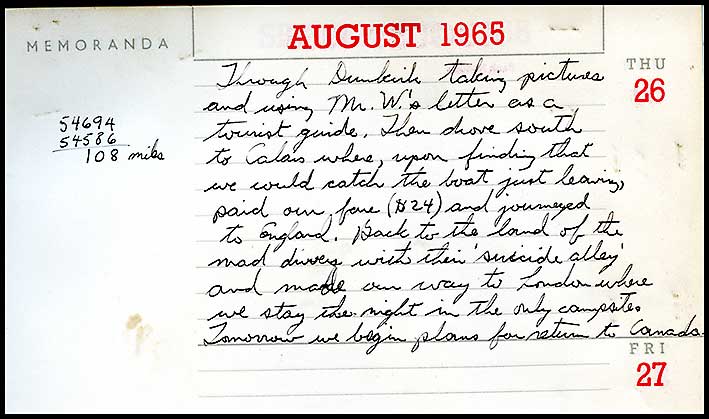 AUGUST 1965
MEMORANDA
THU
26
54694
54586
108 miles
Through Dunkirk taking pictures
and using Mr. W.'s letter as a
tourist guide. Then drove south
to Calais where, upon finding that
we could catch the boat just leaving,
paid our fare ($24) and journeyed
to England. Back to the land of the
mad drivers with their 'suicide alley'
and made our way to London where
we stay the night in the only campsite.
Tomorrow we begin plans for return to Canada.
FRI
27